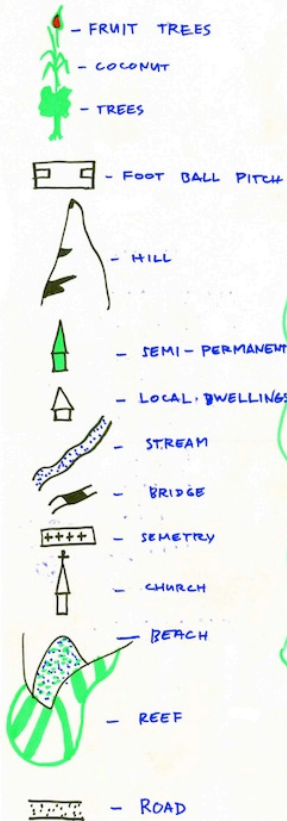 - FRUIT TREES
- COCONUT
- TREES
- FOOT BALL PITCH
- HILL
- SEMI-PERMANENT
- LOCAL. DWELLINGS
- STREAM
- BRIDGE
- SEMETRY
- CHURCH
- BEACH
- REEF
- ROAD